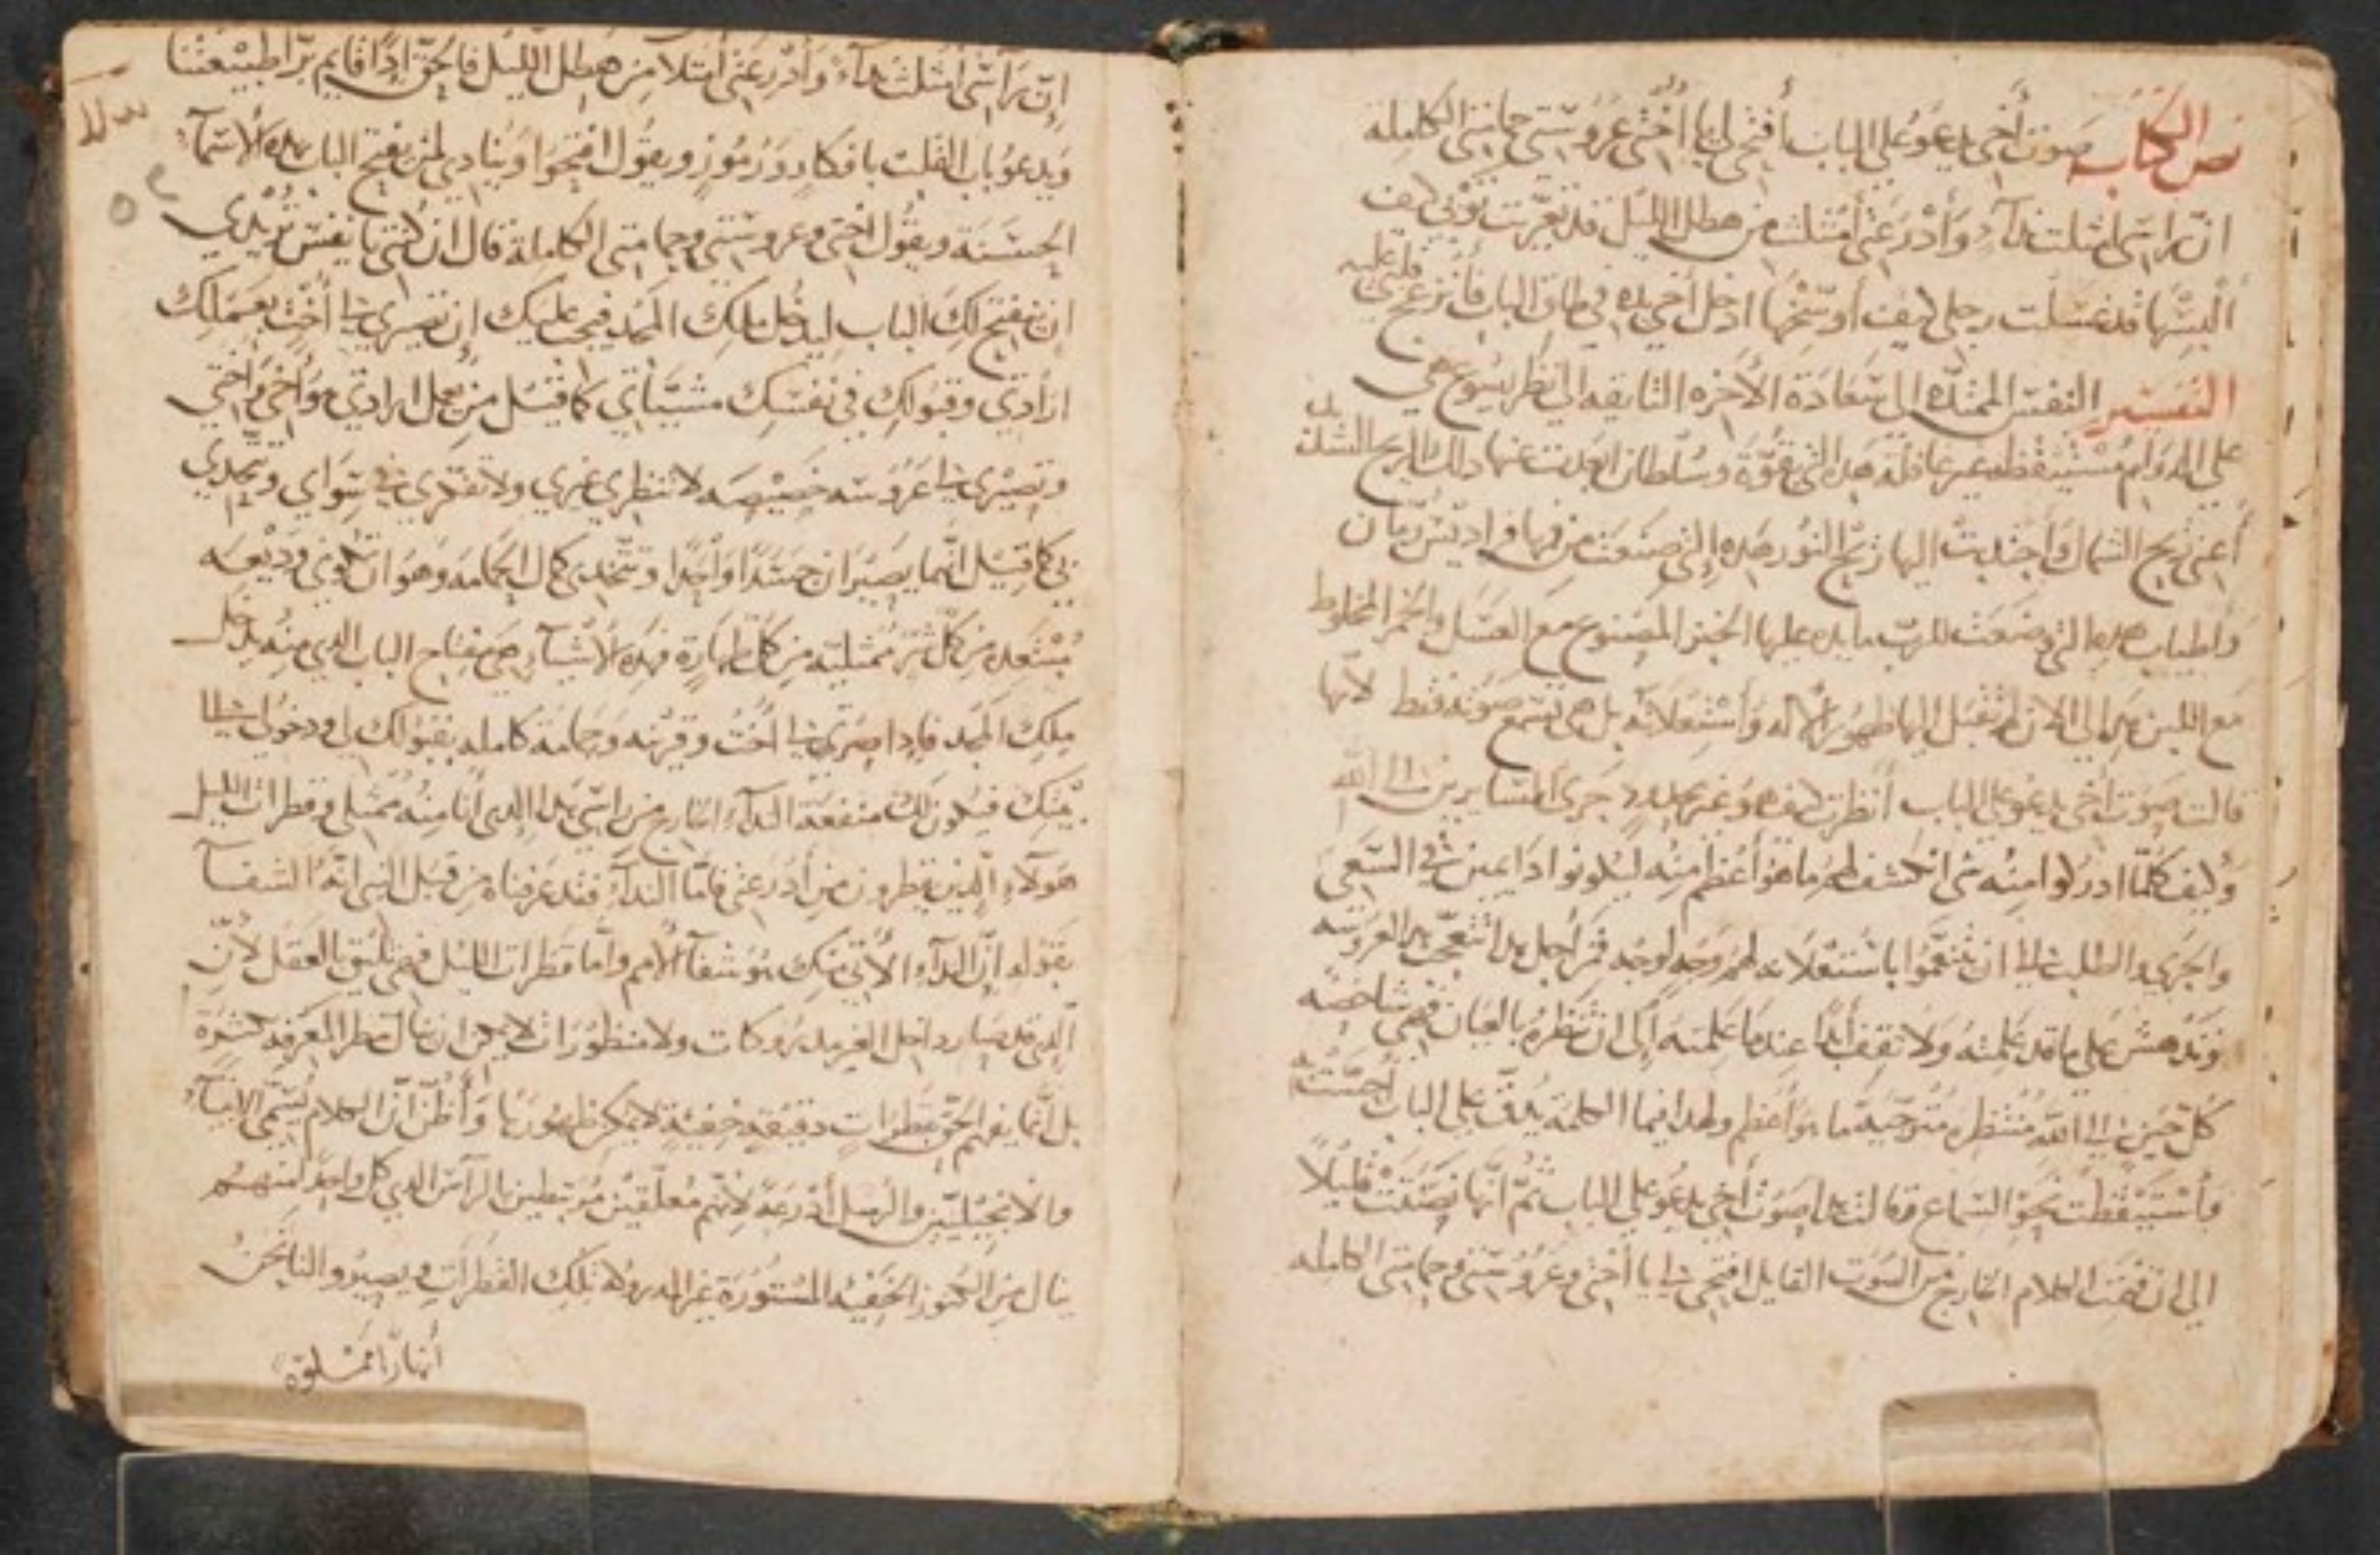 نص الكتاب صوت أخي يدعو على الباب أفتحي لي يا أختي عروستي حمامتي الكاملة
ان راسي امتلت نداء وأدرعتي أمتلت من هطل الليل قد تعريت ثوبي كيف
ألبسها قد غسلت رجلي كيف أوسخها ادخل أخي يده في طاق الباب فانزعج قلبي عليه
التفسير النفس الممتده الى السعادة الأخره التابعه الى نظر يسوع هي
على الدوام مستيقظه غير غافلة هذه التي بقوة وسلطان ابعدت عنها ذلك الريح
أعني ريح الشمال وأجتذبت اليها ريح التيمن هذه التي صنعت من فمها فراديس رمان
وأطياب هذه التي وضعت للرب مايده عليها الخبز المصنوع مع العسل والخمر المخلوط
مع اللبن هي الى الان لم تقبل اليها ظهور الاله وأستعلانه بل هي تسمع صوته فقط لأنها
قالت صوت أخي يدعو على الباب أنظرت كيف هو غير محدود جرى السايرين الى الله
وكيف كلما ادركوا منه شي انكشف لهم ما هو أعظم منه ليكونوا دايمين في السعي
والجري والطلب الى ان يتنعموا باستعلانه لهم وجه لوجه فمن أجل هذا تتعجب هذه العروسه
وتدهش على ما قد علمته ولا تقف أبدا عند ما علمته الى ان تنظره بالعيان فهي شاخصه
كل حين الى الله منتظره مترجيه ما هو أعظم ولهذا فيما الكلمة يدق على الباب أحست به
فأستيقظت نحو السماع وقالت هذا صوت أخي يدعو على الباب ثم انها نصتت قليلا
الى ان فهمت الكلام الخارج من الصوت القايل افتحي لي يا أختي وعروستي وحمامتي الكاملة
إن راسي أمتلت نداء وأدرعتي أمتلا من هطل الليل فالحق اذا قايم برا طبيعتنا
ويدعو باب القلب بافكار ورموز ويقول افتحوا وينادي لمن يفتح الباب بهذه الأسماء
الحسنة ويقول اختي وعروستي وحمامتي الكاملة قال ان كنتي يا نفس تريدي
ان ينفتح لك الباب ليدخل ملك المجد فيجب عليك ان تصيري لي أخت بعملك
ارادتي وقبولك في نفسك مشيأتي كما قيل من يعمل ارادتي هو أخي وأختي
وتصيري لي عروسه خصيصه لا تنظري غيري ولا تفكري في سواي وتتحدي
بي كما قيل انهما يصيران جسدا واحدا وتتخدي كمال الحمامه وهو ان تكوني وديعه
مبتعده من كل شر ممتليه من كل طهارة فهذه الأشياء هي مفتاح الباب الذي منه يدخل
ملك المجد فاذا صرتي لي أخت وقرينه وحمامة كامله بقبولك لي ودخولي الى
بيتك فيكون لك منفعة النداء الخارج من راسي هذا الذي أنا منه ممتلي وقطرات الليل
هولاء الذين يقطرون من أدرعتي فاما النداء فقد عرفناه من قبل النبي انه الشفا
بقوله إن النداء الأتي منك هو شفاء الأمم وأما قطرات الليل فهي تليق بالعقل لأن
الذي قد صار داخل الغير مدروكات ولا منظورات لا يمكن ان ينال مطر المعرفه كثيرة
بل انما يفهم الحق بقطرات دقيقة خفية لا يمكن ظهورها وأظن أن الكلام يسمي الانبياء
والانجيليين والرسل أدرعة لأنهم معلقين مرتبطين بالراس الذي كل واحد منهم
ينال من الكنوز الخفيه المستورة غير المدروكه تلك القطرات ويصيروا لنا نحن
أنهارا مملوة